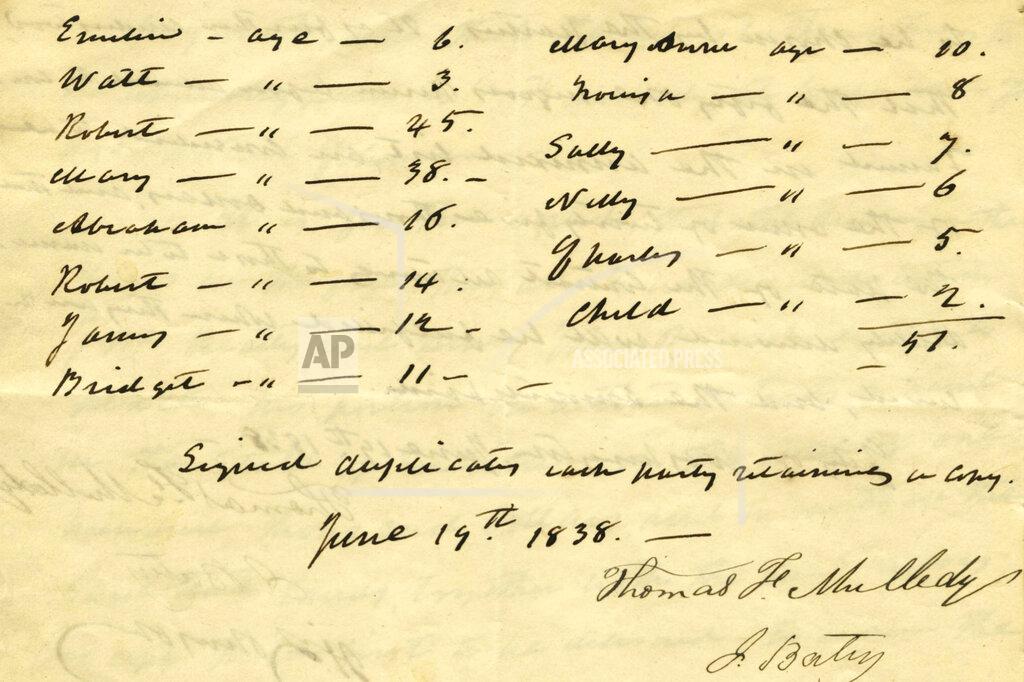 Emeline - age — 6.
Watt — " — 3.
Robert — " — 45.
Mary — " — 38. -
Abraham " — 16.
Robert — " — 14.
James — " — 12 -
Bridget - " — 11 - —
Mary Anne age — 10.
Louisa — " — 8
Sally — " — 7.
Nelly — " — 6
Charles — " — 5.
Child — " — 2.
51.
Signed duplicates each party retaining a copy.
June 19th. 1838. —
Thomas F. Mulledy
J. Batey
AP
ASSOCIATED PRESS